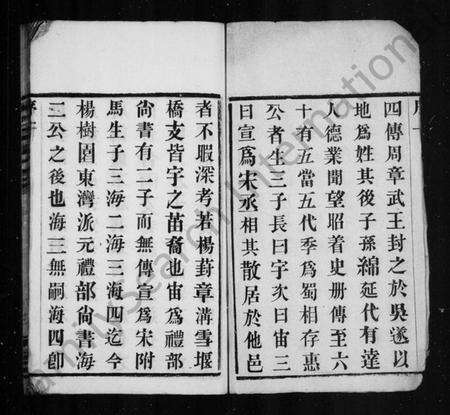 四傳周章武王封之於吳遂以
地爲姓其後子孫綿延代有達
人德業聞望昭着史册傳至六
十有五當五代季爲蜀相存惠
公者生三子長曰宇次曰宙三
曰宣爲宋丞相其散居於他邑
者不暇深考若楊葑章溝雪堰
橋支皆宇之苗裔也宙爲禮部
尙書有二子而無傳宣爲宋附
馬生子三海二海三海四迄今
楊樹園東灣派元禮部尙書海
三公之後也海三無嗣海四卽